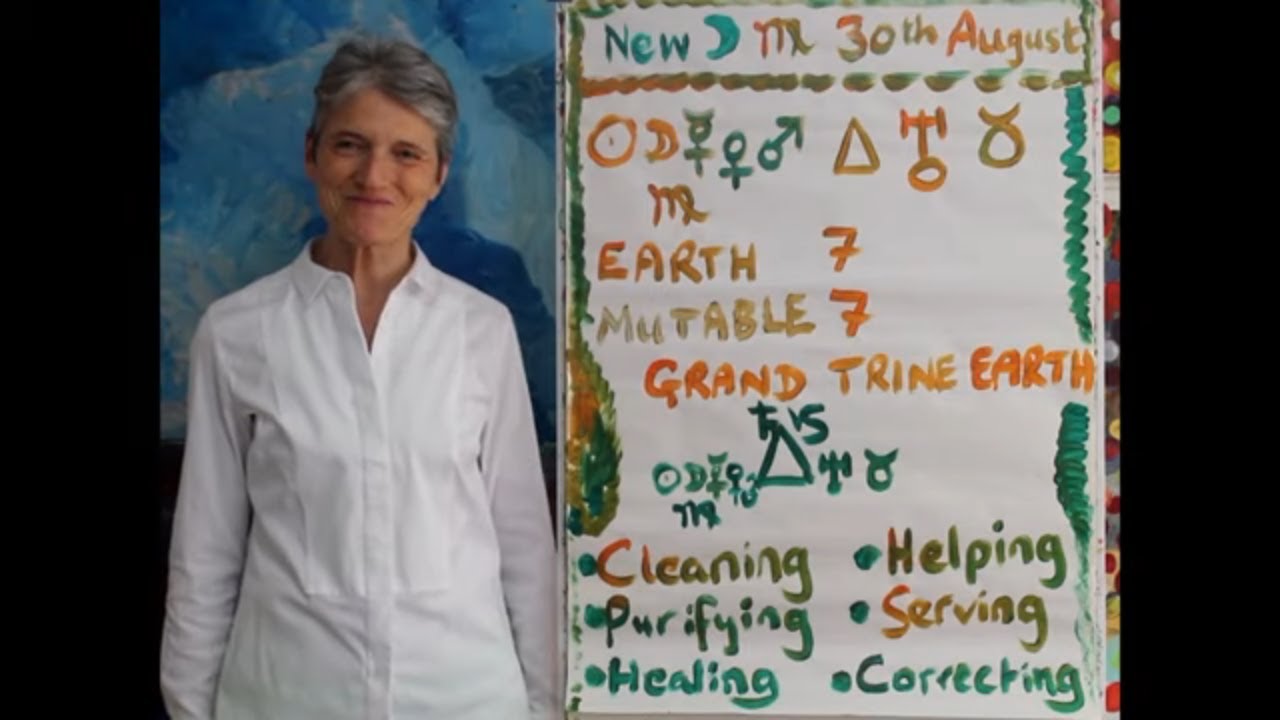 New ☽ ♍ 30th August
☉ ☽ ☿ ♀ ♂ △ ♅ ♉
♍
EARTH 7
MUTABLE 7
GRAND TRINE EARTH
♄ ♑
☉ ☽ ☿ ♀ ♂ △ ♅ ♉
♍
• Cleaning • Helping
• Purifying • Serving
• Healing • Correcting